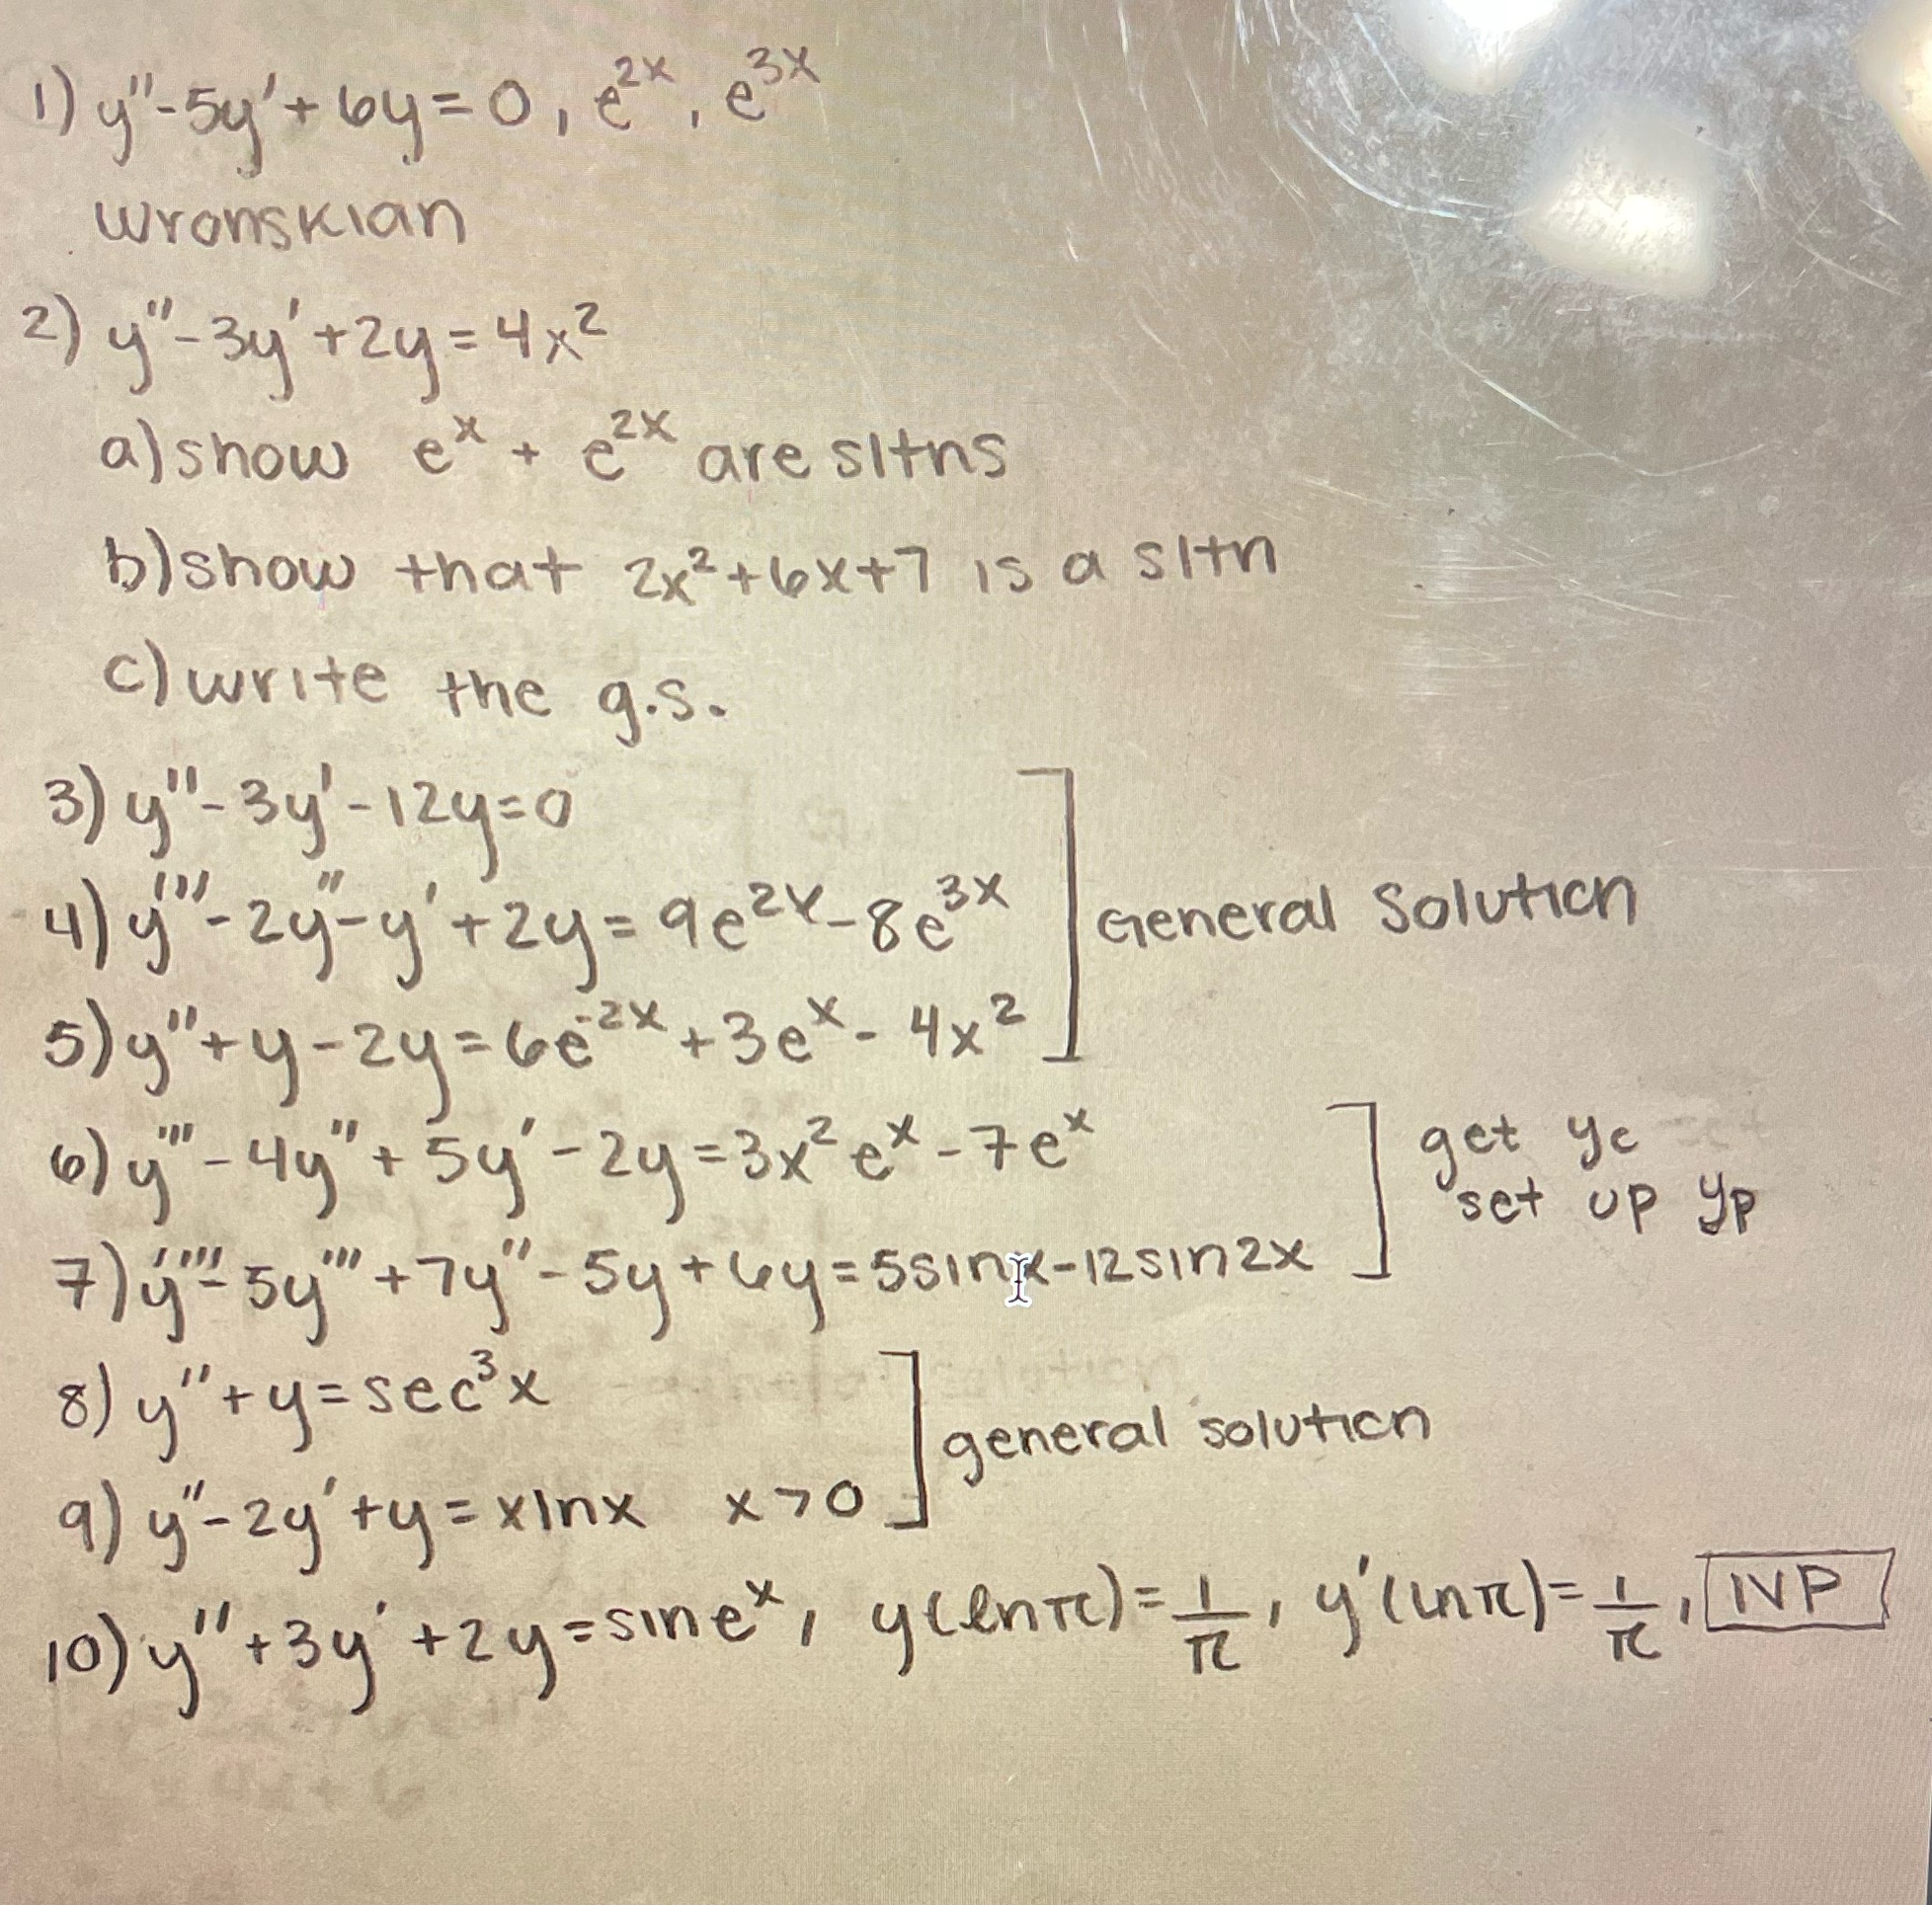 1) y''-5y'+6y=0, e^2x, e^3x
wronskian
2) y''-3y'+2y=4x^2
a) show e^x + e^2x are sltns
b) show that 2x^2+6x+7 is a sltn
c) write the g.s.
3) y''-3y'-12y=0
4) y'''-2y''-y'+2y=9e^2x-8e^3x
General solution
5) y''+y-2y=6e^-2x+3e^x-4x^2
6) y'''-4y''+5y'-2y=3x^2e^x-7e^x
get yc
set up yp
7) y''''-5y'''+7y''-5y+6y=5sinx-12sin2x
8) y''+y=sec^3x
general solution
9) y''-2y'+y=xlnx x>0
10) y''+3y'+2y=sine^x, y(lnπ)=1/π, y'(lnπ)=1/π, IVP